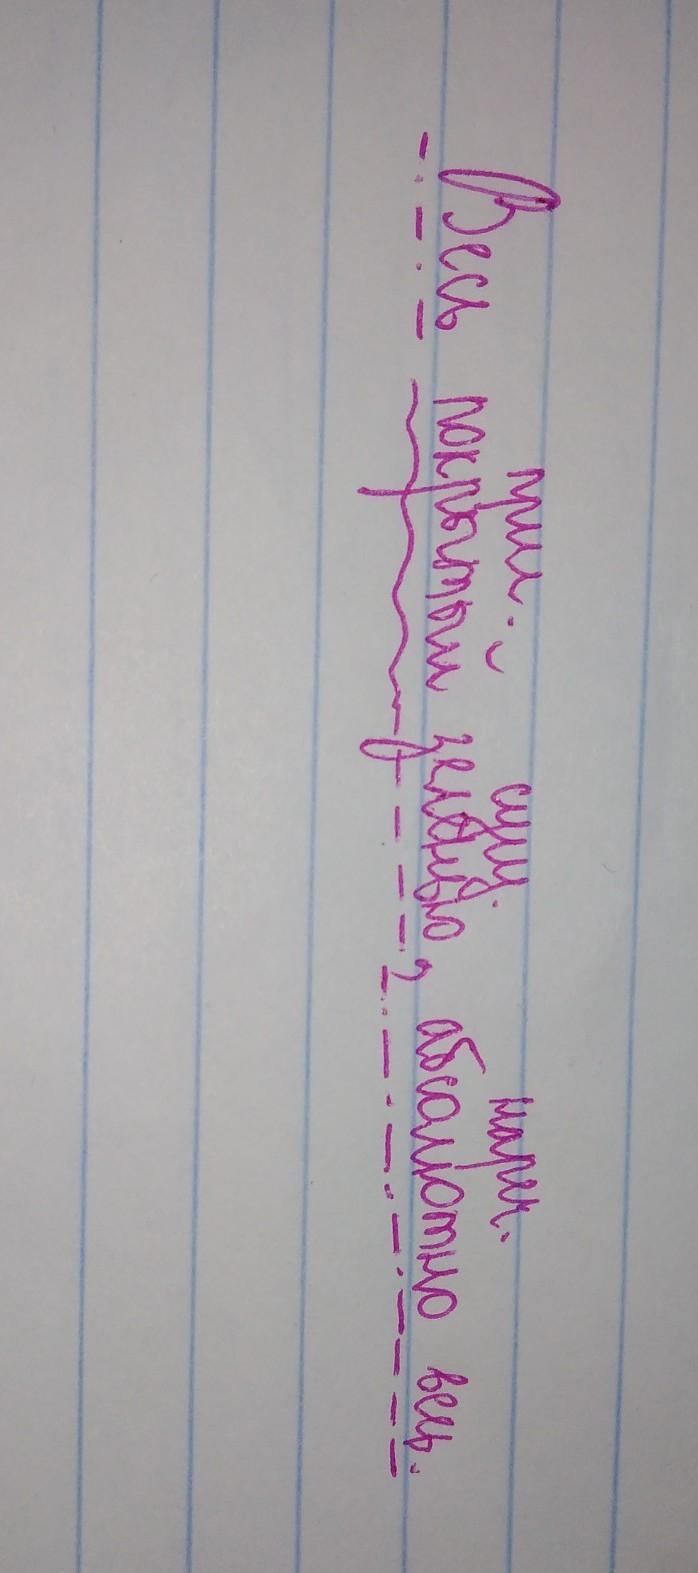 прил. сущ. нареч.
Весь покрытый зеленью, абсолютно весь.